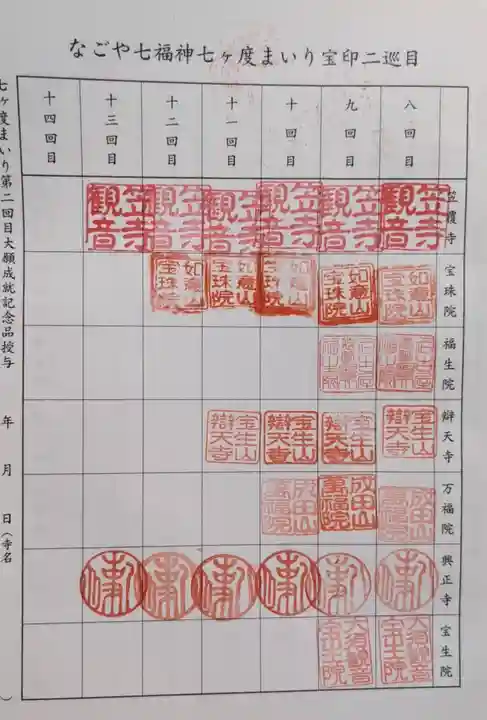 なごや七福神七ヶ度まいり宝印二巡目
八回目
九回目
十回目
十一回目
十二回目
十三回目
十四回目
笠覆寺
笠寺観音
笠寺観音
笠寺観音
笠寺観音
笠寺観音
笠寺観音
宝珠院
如意山宝珠院
如意山宝珠院
如意山宝珠院
如意山宝珠院
如意山宝珠院
福生院
辯天寺
宝生山辯天寺
宝生山辯天寺
宝生山辯天寺
宝生山辯天寺
万福院
成田山萬福院
成田山萬福院
成田山萬福院
興正寺
宝生院
大須観音宝生院
大須観音宝生院
七ヶ度まいり第二回目大願成就記念品授与 年 月 日(寺名 )